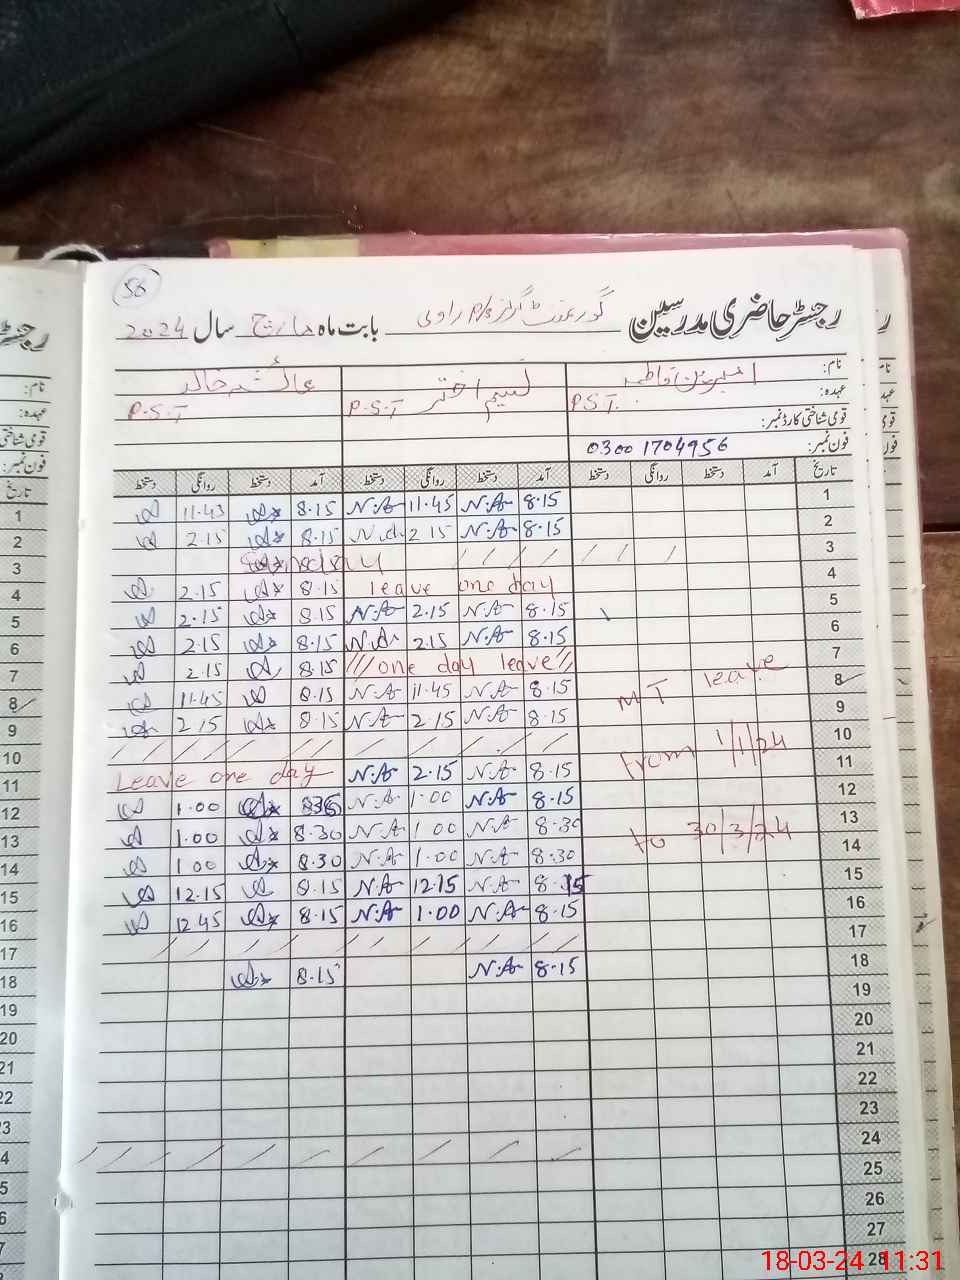 56
رجسٹر حاضری مدرسین گورنمنٹ گرلز P/S راولی بابت ماہ مارچ سال 2024
نام: عنبرین فاطمہ نسیم اختر عائشہ خالد
عہدہ: P.S.T. P.S.T P.S.T
قومی شناختی کارڈ نمبر:
فون نمبر: 0300 1704956
تاریخ آمد دستخط روانگی دستخط آمد دستخط روانگی دستخط آمد دستخط روانگی دستخط
1 8.15 N.A 11.45 N.A 8.15 11.45
2 8.15 N.A 2.15 N.A 8.15 2.15
3 Sunday
4 leave one day 8.15 2.15
5 8.15 N.A 2.15 N.A 8.15 2.15
6 8.15 N.A 2.15 N.A 8.15 2.15
7 one day leave 8.15 2.15
8 MT leave 8.15 N.A 11.45 N.A 8.15 11.45
9 8.15 N.A 2.15 N.A 8.15 2.15
10 From 1/1/24
11 8.15 N.A 2.15 N.A Leave one day
12 8.15 N.A 1.00 N.A 1.00
13 to 30/3/24 8.30 N.A 1.00 N.A 8.30 1.00
14 8.30 N.A 1.00 N.A 8.30 1.00
15 8.15 N.A 12.15 N.A 8.15 12.15
16 8.15 N.A 1.00 N.A 8.15 12.45
17
18 8.15 N.A 8.15
19
20
21
22
23
24
25
26
27
28
18-03-24 11:31